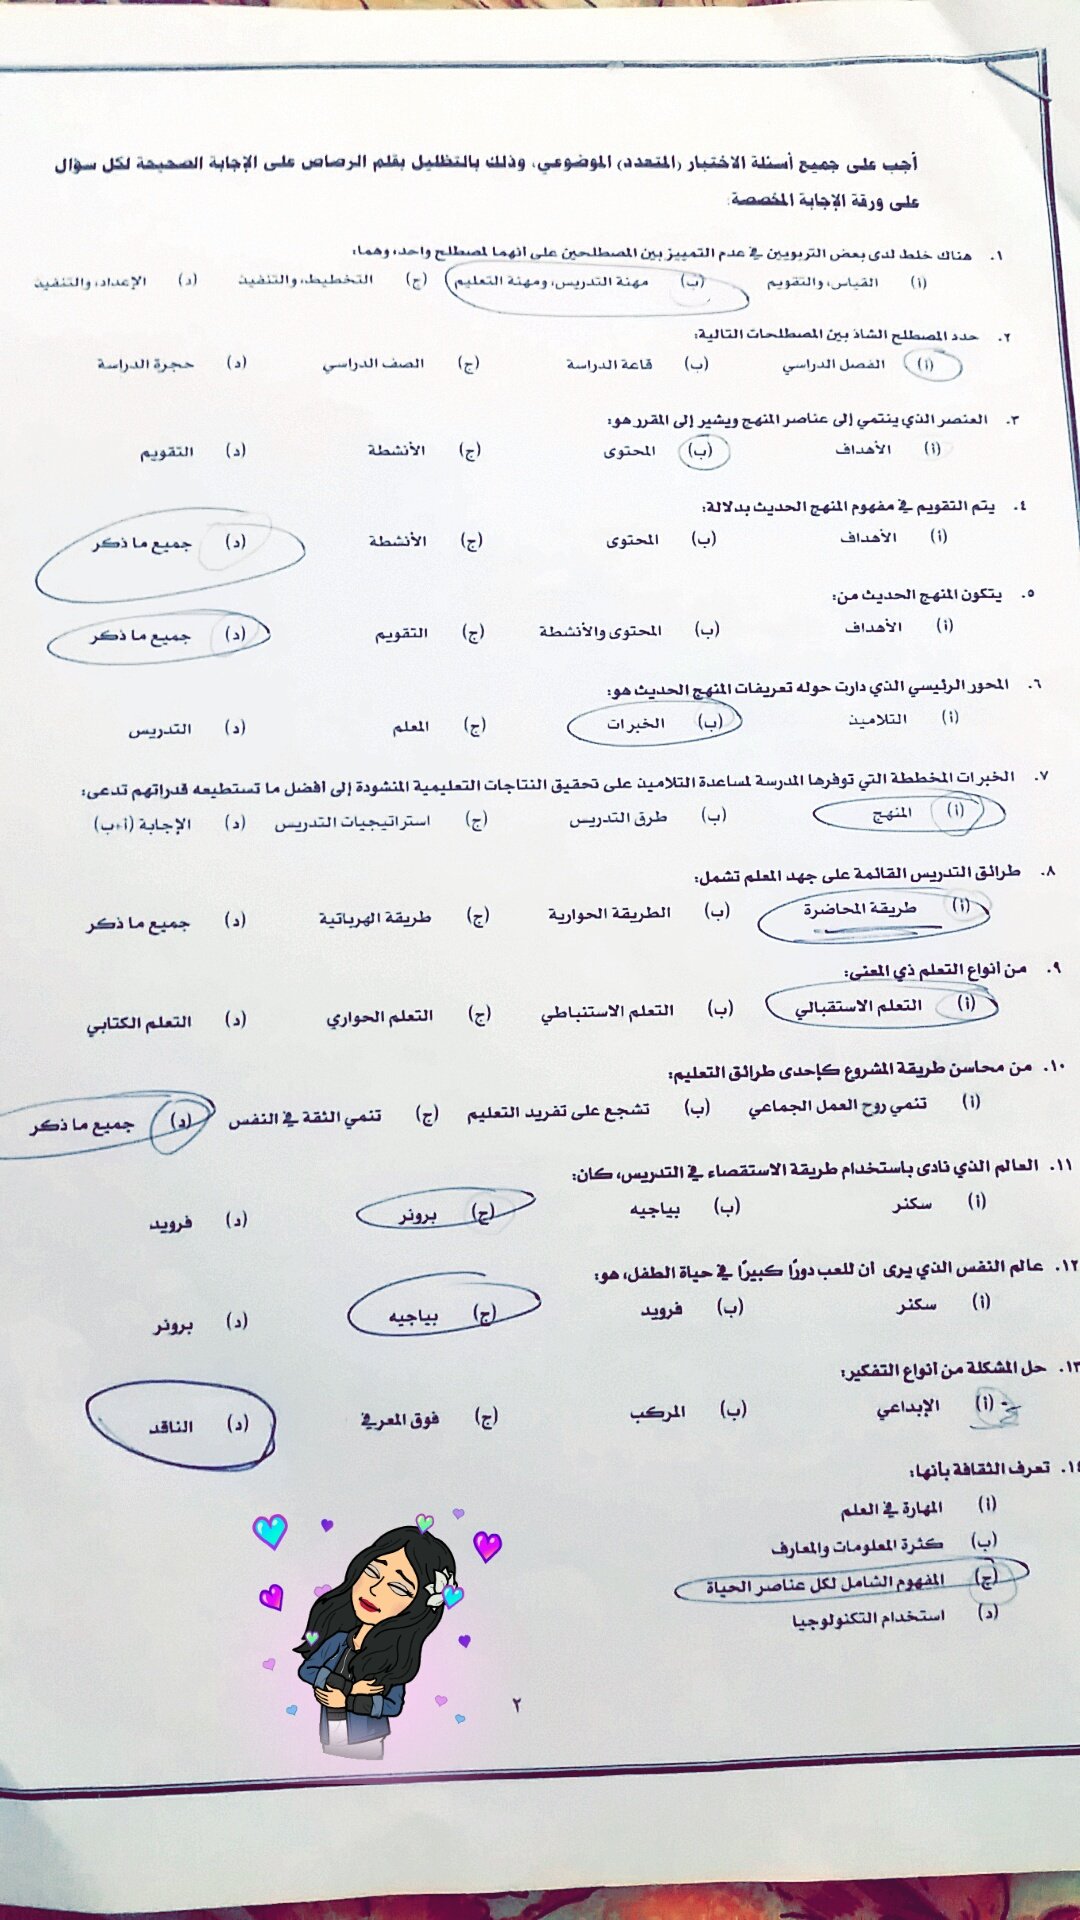 أجب على جميع أسئلة الاختبار (المتعدد) الموضوعي، وذلك بالتظليل بقلم الرصاص على الإجابة الصحيحة لكل سؤال
على ورقة الإجابة المخصصة:
١. هناك خلط لدى بعض التربويين في عدم التمييز بين المصطلحين على أنهما لمصطلح واحد، وهما:
(أ) القياس، والتقويم (ب) مهنة التدريس، ومهنة التعليم (ج) التخطيط، والتنفيذ (د) الإعداد، والتنفيذ
٢. حدد المصطلح الشاذ بين المصطلحات التالية:
(أ) الفصل الدراسي (ب) قاعة الدراسة (ج) الصف الدراسي (د) حجرة الدراسة
٣. العنصر الذي ينتمي إلى عناصر المنهج ويشير إلى المقرر هو:
(أ) الأهداف (ب) المحتوى (ج) الأنشطة (د) التقويم
٤. يتم التقويم في مفهوم المنهج الحديث بدلالة:
(أ) الأهداف (ب) المحتوى (ج) الأنشطة (د) جميع ما ذكر
٥. يتكون المنهج الحديث من:
(أ) الأهداف (ب) المحتوى والأنشطة (ج) التقويم (د) جميع ما ذكر
٦. المحور الرئيسي الذي دارت حوله تعريفات المنهج الحديث هو:
(أ) التلاميذ (ب) الخبرات (ج) المعلم (د) التدريس
٧. الخبرات المخططة التي توفرها المدرسة لمساعدة التلاميذ على تحقيق النتاجات التعليمية المنشودة إلى أفضل ما تستطيعه قدراتهم تدعى:
(أ) المنهج (ب) طرق التدريس (ج) استراتيجيات التدريس (د) الإجابة (أ+ب)
٨. طرائق التدريس القائمة على جهد المعلم تشمل:
(أ) طريقة المحاضرة (ب) الطريقة الحوارية (ج) طريقة الهرباتية (د) جميع ما ذكر
٩. من أنواع التعلم ذي المعنى:
(أ) التعلم الاستقبالي (ب) التعلم الاستنباطي (ج) التعلم الحواري (د) التعلم الكتابي
١٠. من محاسن طريقة المشروع كإحدى طرائق التعليم:
(أ) تنمي روح العمل الجماعي (ب) تشجع على تفريد التعليم (ج) تنمي الثقة في النفس (د) جميع ما ذكر
١١. العالم الذي نادى باستخدام طريقة الاستقصاء في التدريس، كان:
(أ) سكنر (ب) بياجيه (ج) برونر (د) فرويد
١٢. عالم النفس الذي يرى أن للعب دورًا كبيرًا في حياة الطفل، هو:
(أ) سكنر (ب) فرويد (ج) بياجيه (د) برونر
١٣. حل المشكلة من أنواع التفكير:
(أ) الإبداعي (ب) المركب (ج) فوق المعرفي (د) الناقد
١٤. تعرف الثقافة بأنها:
(أ) المهارة في العلم
(ب) كثرة المعلومات والمعارف
(ج) المفهوم الشامل لكل عناصر الحياة
(د) استخدام التكنولوجيا
٢